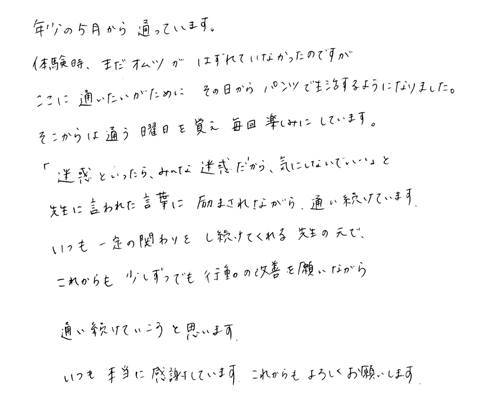 年少の5月から通っています。
体験時、まだオムツがはずれていなかったのですが
ここに通いたいがためにその日からパンツで生活するようになりました。
そこからは通う曜日を覚え毎回楽しみにしています。
「迷惑といったら、みんな迷惑だから、気にしないでいい」と
先生に言われた言葉に励まされながら、通い続けています。
いつも一定の関わりをし続けてくれる先生の元で、
これからも少しずつでも行動の改善を願いながら
通い続けていこうと思います。
いつも本当に感謝しています。これからもよろしくお願いします。